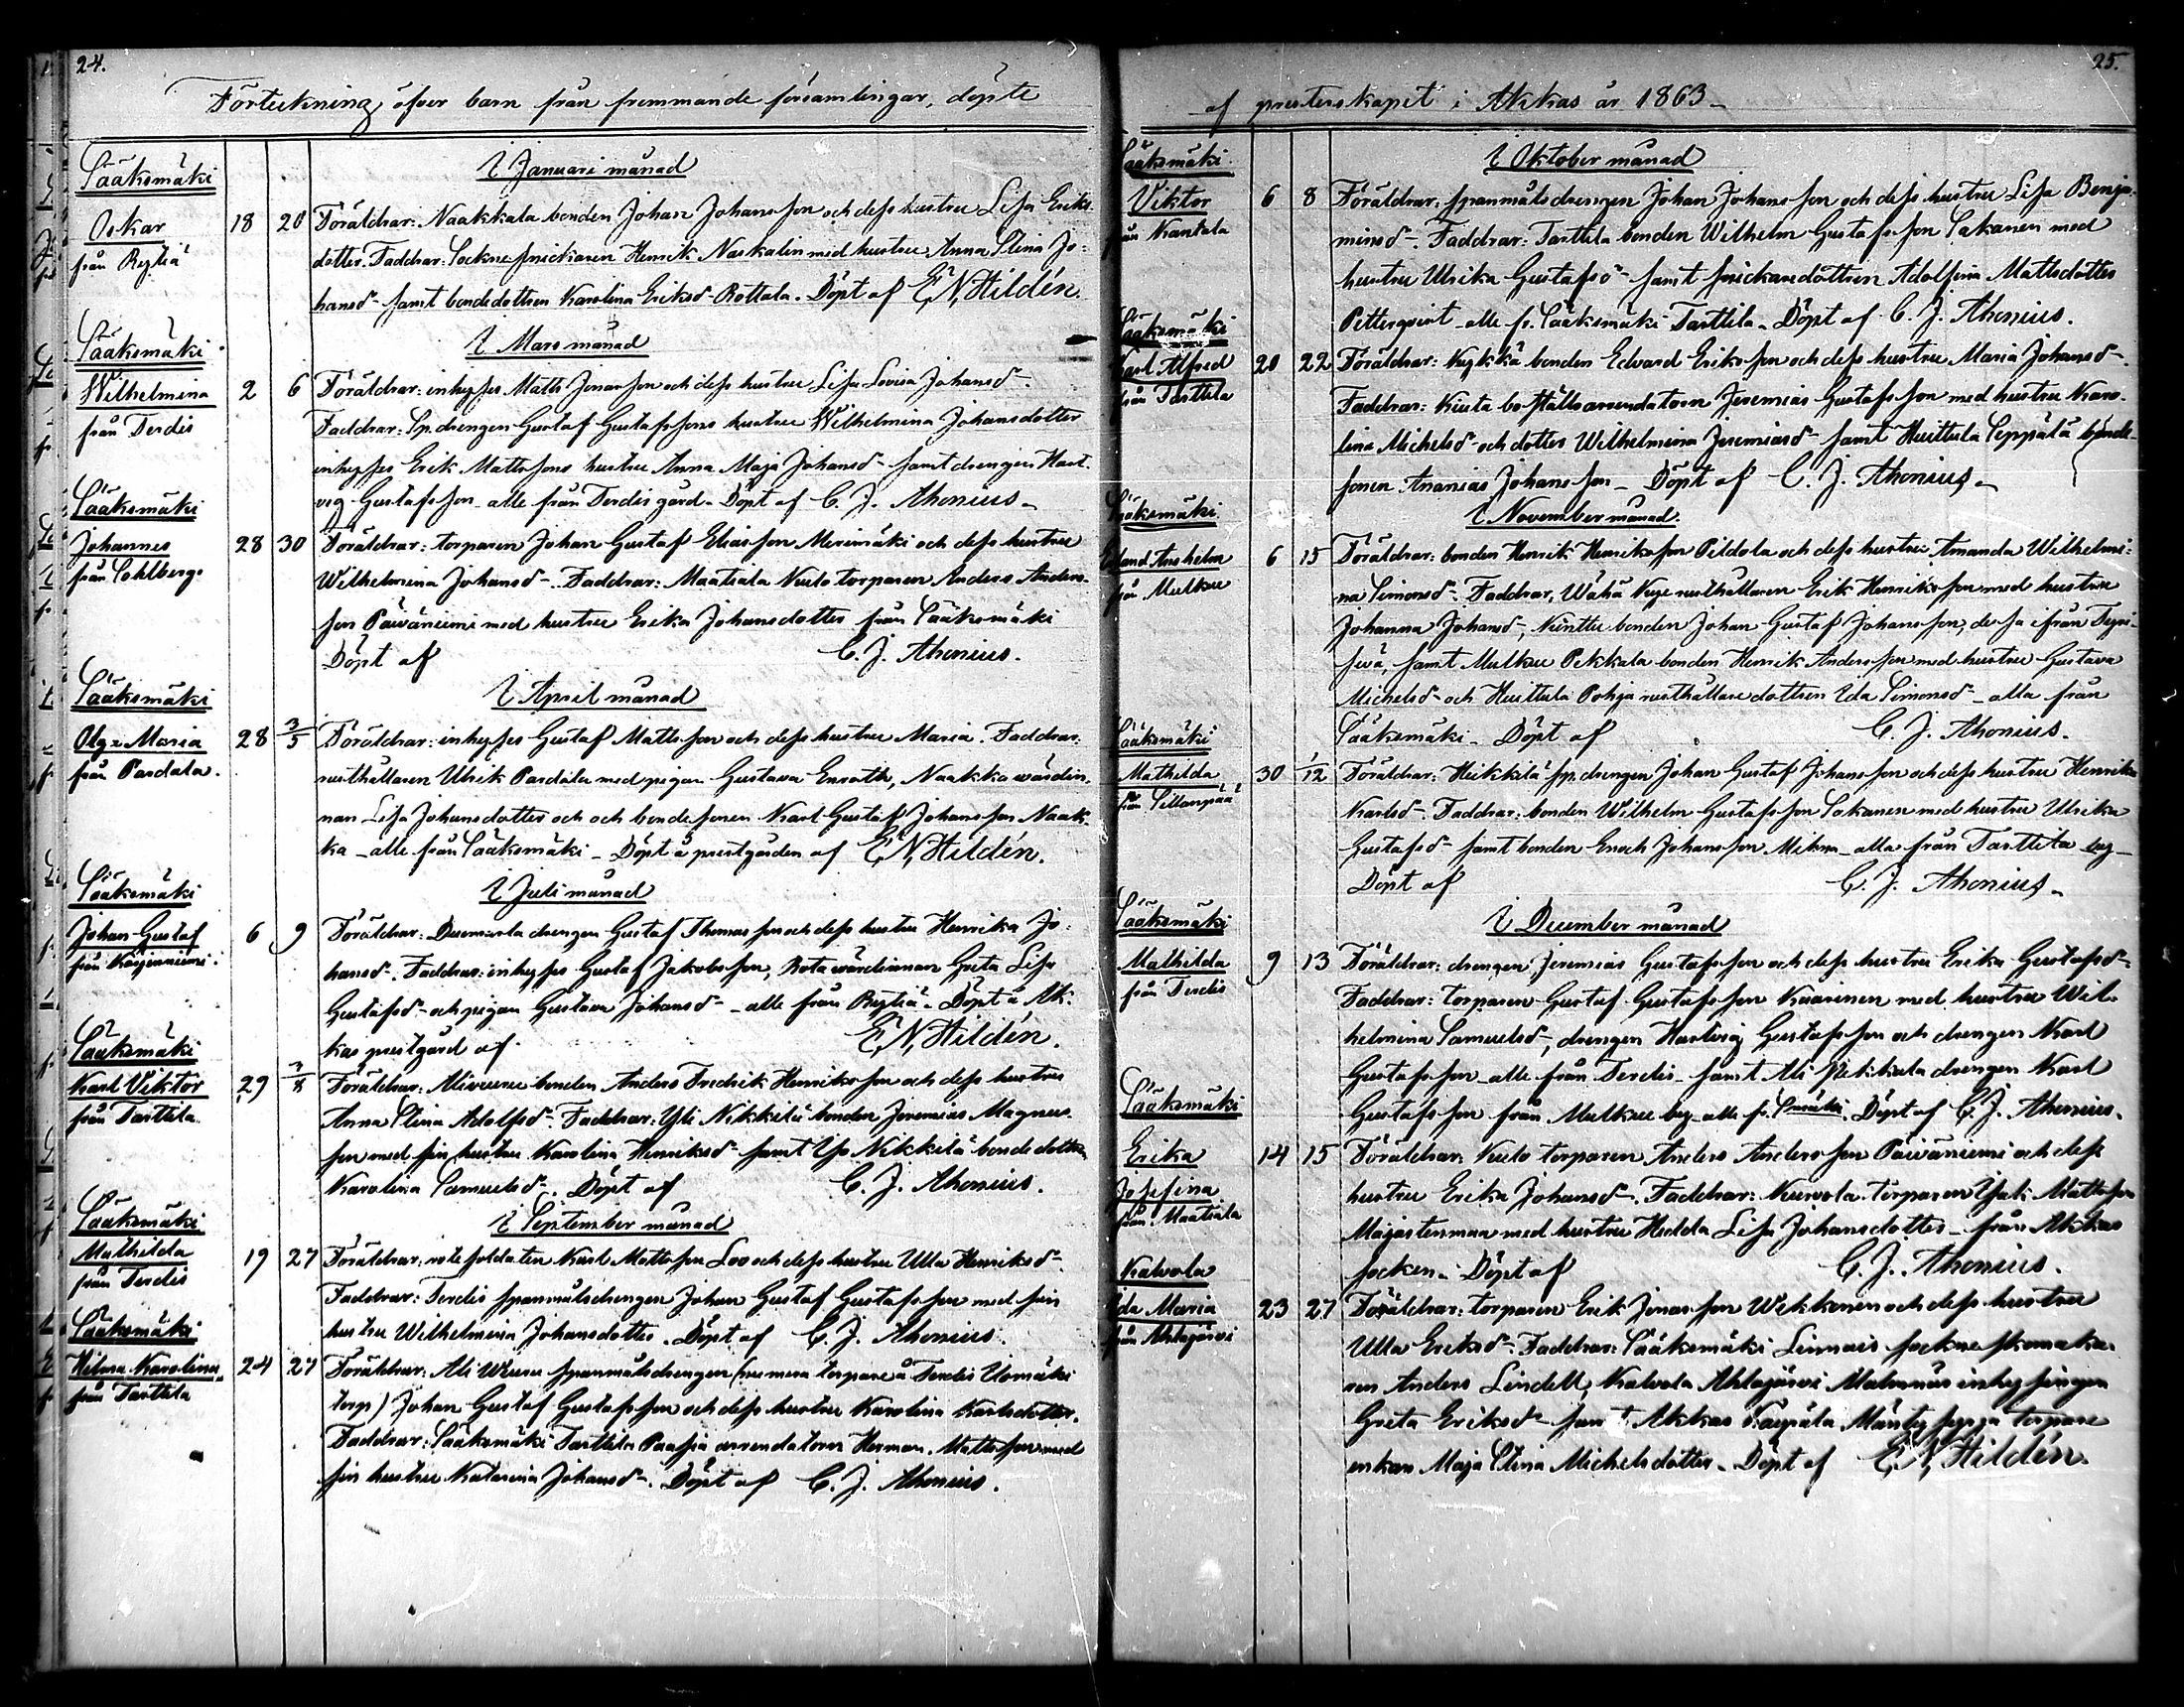 24.
Förteckning öfver barn från fremmande församlingar, döpte
I Januari månad
Sääksmäki
Oskar 18 20 Föräldrar: Naakkala bonden Johan Johansson och dess hustru Lisa Eriks-
från Rytiä dotter. Faddrar: Sockne snickaren Henrik Naskalin med hustru Anna Stina Jo-
hansd- samt bondedottren Karolina Eriksd- Rottola. Döpt af E N Hildén.
I Mars månad
Sääksmäki
Wilhelmina 2 6 Föräldrar: inhyses Matts Jonasson och dess hustru Lisa Lovisa Johansd-.
från Terdis Faddrar: Sp. drengen Gustaf Gustafssons hustru Wilhelmina Johansdotter
inhyses Erik Mattssons hustru Anna Maja Johansd- samt drengen Hart-
vig Gustafsson alle från Terdis gård. Döpt af C. J. Ahonius.
Sääksmäki
Johannes 28 30 Föräldrar: torparen Johan Gustaf Eliasson Merimäki och dess hustru
från Sohlbergs Wilhelmina Johansd-. Faddrar: Maatiala Nuuto torparen Anders Anders-
son Päiväniemi med hustru Erika Johansdotter från Sääksmäki
Döpt af C. J. Ahonius.
I April månad
Sääksmäki
Olga Maria 28 3/5 Föräldrar: inhyses Gustaf Mattsson och dess hustru Maria. Faddrar:
från Pardala. rusthållaren Ulrik Pardala med pigan Gustava Enrath, Naakka wärdin-
nan Lisa Johansdotter och och bondesonen Karl Gustaf Johansson Naak-
ka alle från Sääksmäki Döpt å prestgården af E N Hildén.
I Juli månad
Sääksmäki
Johan Gustaf 6 9 Föräldrar: drengen Gustaf Thomasson och dess hustru Henrika Jo-
från Karjenniemi. hansd-. Faddrar: inhyses Gustaf Jakobsson, Rota wärdinnan Greta Lisa
Gustafsd- och pigan Gustava Johansd- alle från Rytiä. Döpt å Ak-
kas prestgård af E N Hildén.
Sääksmäki
Karl Viktor 29 3/8 Föräldrar: Aliveuru bonden Anders Fredrik Henriksson och dess hustru
från Tarttila Anna Stina Adolfsd-. Faddrar: Yli Nikkilä bonden Jeremias Magnus-
son med sin hustru Karolina Henriksd- samt Yli Nikkilä bondedottren
Karolina Samuelsd-. Döpt af C. J. Ahonius.
I September månad
Sääksmäki
Mathilda 19 27 Föräldrar: rote soldaten Karl Mattsson Loo och dess hustru Ulla Henriksd-
från Terdis Faddrar: Terdis spannmålsdrengen Johan Gustaf Gustafsson med sin
hustru Wilhelmina Johansdotter. Döpt af C. J. Ahonius.
Sääksmäki
Hilma Karolina 24 27 Föräldrar: Ali Weuru spannmålsdrengen (numera torpare å Terdis Uomäki
från Tarttila torp) Johan Gustaf Gustafsson och dess hustru Karolina Karlsdotter.
Faddrar: Sääksmäki Tarttila Paasia arrendatorn Herman Mattsson med
sin hustru Katarina Johansd-. Döpt af C. J. Ahonius.
25.
af presterskapet i Akkas år 1863
I Oktober månad
Sääksmäki
Viktor 6 8 Föräldrar: spannmålsdrengen Johan Johansson och dess hustru Lisa Benja-
från Kantala minsd-. Faddrar: Tarttila bonden Wilhelm Gustafsson Sakanen med
hustru Ulrika Gustafsd- samt snickaredottren Adolfina Mattsdotter
Petterqvist alle fr. Sääksmäki Tarttila. Döpt af C. J. Ahonius.
Sääksmäki
Karl Alfred 20 22 Föräldrar: Kykkä bonden Edvard Eriksson och dess hustru Maria Johansd-
från Tarttila Faddrar: Kusta boställsarrendatorn Jeremias Gustafsson med hustru Karo-
lina Michelsd- och dotter Wilhelmina Jeremiasd- samt Huittula Seppälä bonde-
sonen Ananias Johansson Döpt af C. J. Ahonius.
I November månad.
Sääksmäki
Edvard Anshelm 6 15 Föräldrar: bonden Henrik Henriksson Pildola och dess hustru Amanda Wilhelmi-
från Mulkee na Simonsd-. Faddrar: Wähä rusthållaren Erik Henriksson med hustru
Johanna Johansd-, bonden Johan Gustaf Johansson, dessa ifrån
samt Mulkee Pekkala bonden Henrik Andersson med hustru Gustava
Michelsd- och Huittula Pohja rusthållare dottren Eda Simonsd- alla från
Sääksmäki. Döpt af C. J. Ahonius.
Sääksmäki
Mathilda 30 1/12 Föräldrar: Heikkilä sp. drengen Johan Gustaf Johansson och dess hustru Henrika
från Sillanpää Karlsd-. Faddrar: bonden Wilhelm Gustafsson Sakanen med hustru Ulrika
Gustafsd- samt bonden Enoch Johansson alla från Tarttila by
Döpt af C. J. Ahonius.
I December månad
Sääksmäki
Mathilda 9 13 Föräldrar: drengen Jeremias Gustafsson och dess hustru Erika Gustafsd-
från Terdis Faddrar: torparen Gustaf Gustafsson Kaarinen med hustru Wil-
helmina Samuelsd-, drengen Hartvig Gustafsson och drengen Karl
Gustafsson alle från Terdis samt Ali Pekkala drengen Karl
Gustafsson från Mulkee by alle fr. Smäki. Döpt af C. J. Ahonius.
Sääksmäki
Erika 14 15 Föräldrar: Nuuto torparen Anders Andersson Päiväniemi och dess
Josefina hustru Erika Johansd-. Faddrar: torparen Isak Mattsson
från Maatiala Majastenmaa med hustru Hedda Lisa Johansdotter från Akkas
socken. Döpt af C. J. Ahonius.
Kalvola
Ida Maria 23 27 Föräldrar: torparen Erik Jonasson Wekkonen och dess hustru
från Ahlajärvi Ulla Eriksd- Faddrar: Sääksmäki Linnais sockneskomaka-
ren Anders Lindell, Kalvola Ahlajärvi Malmnäs inhysingen
Greta Eriksd- samt Akkas torpare
enkan Maja Stina Michelsdotter. Döpt af E N Hildén.